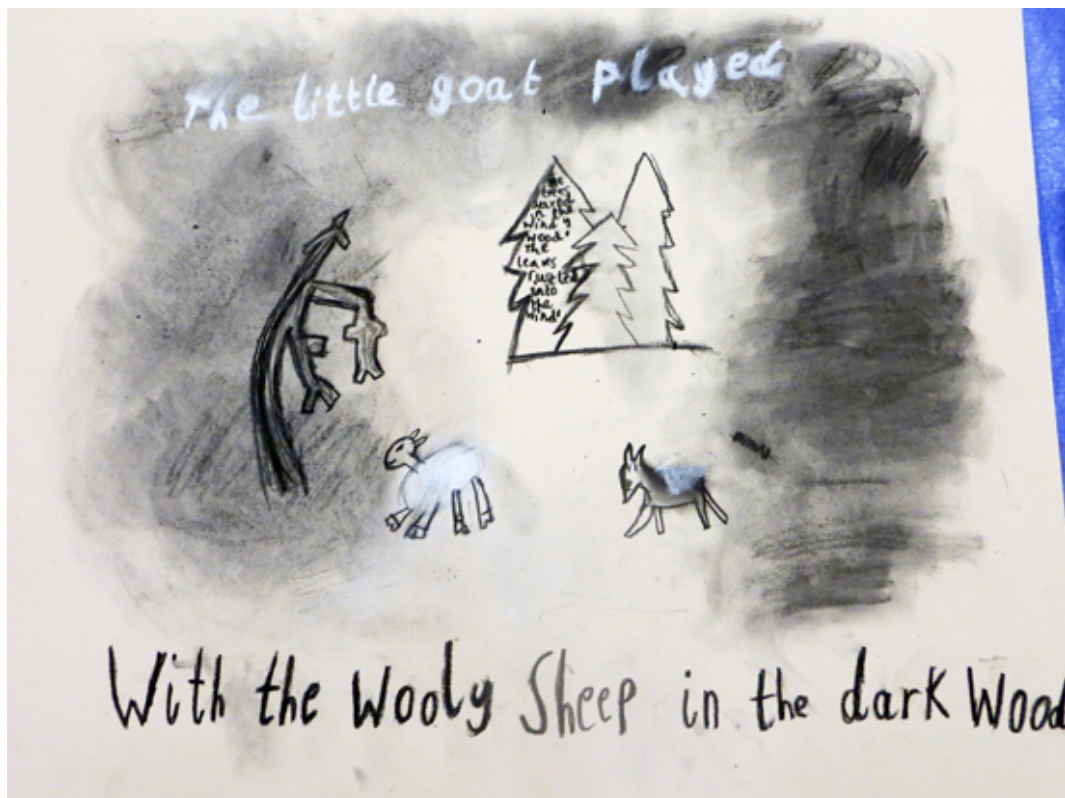 The little goat played
the
trees
in the
wind y
wood"
the
leavs
into
the
wind"
With the Wooly Sheep in the dark Wood